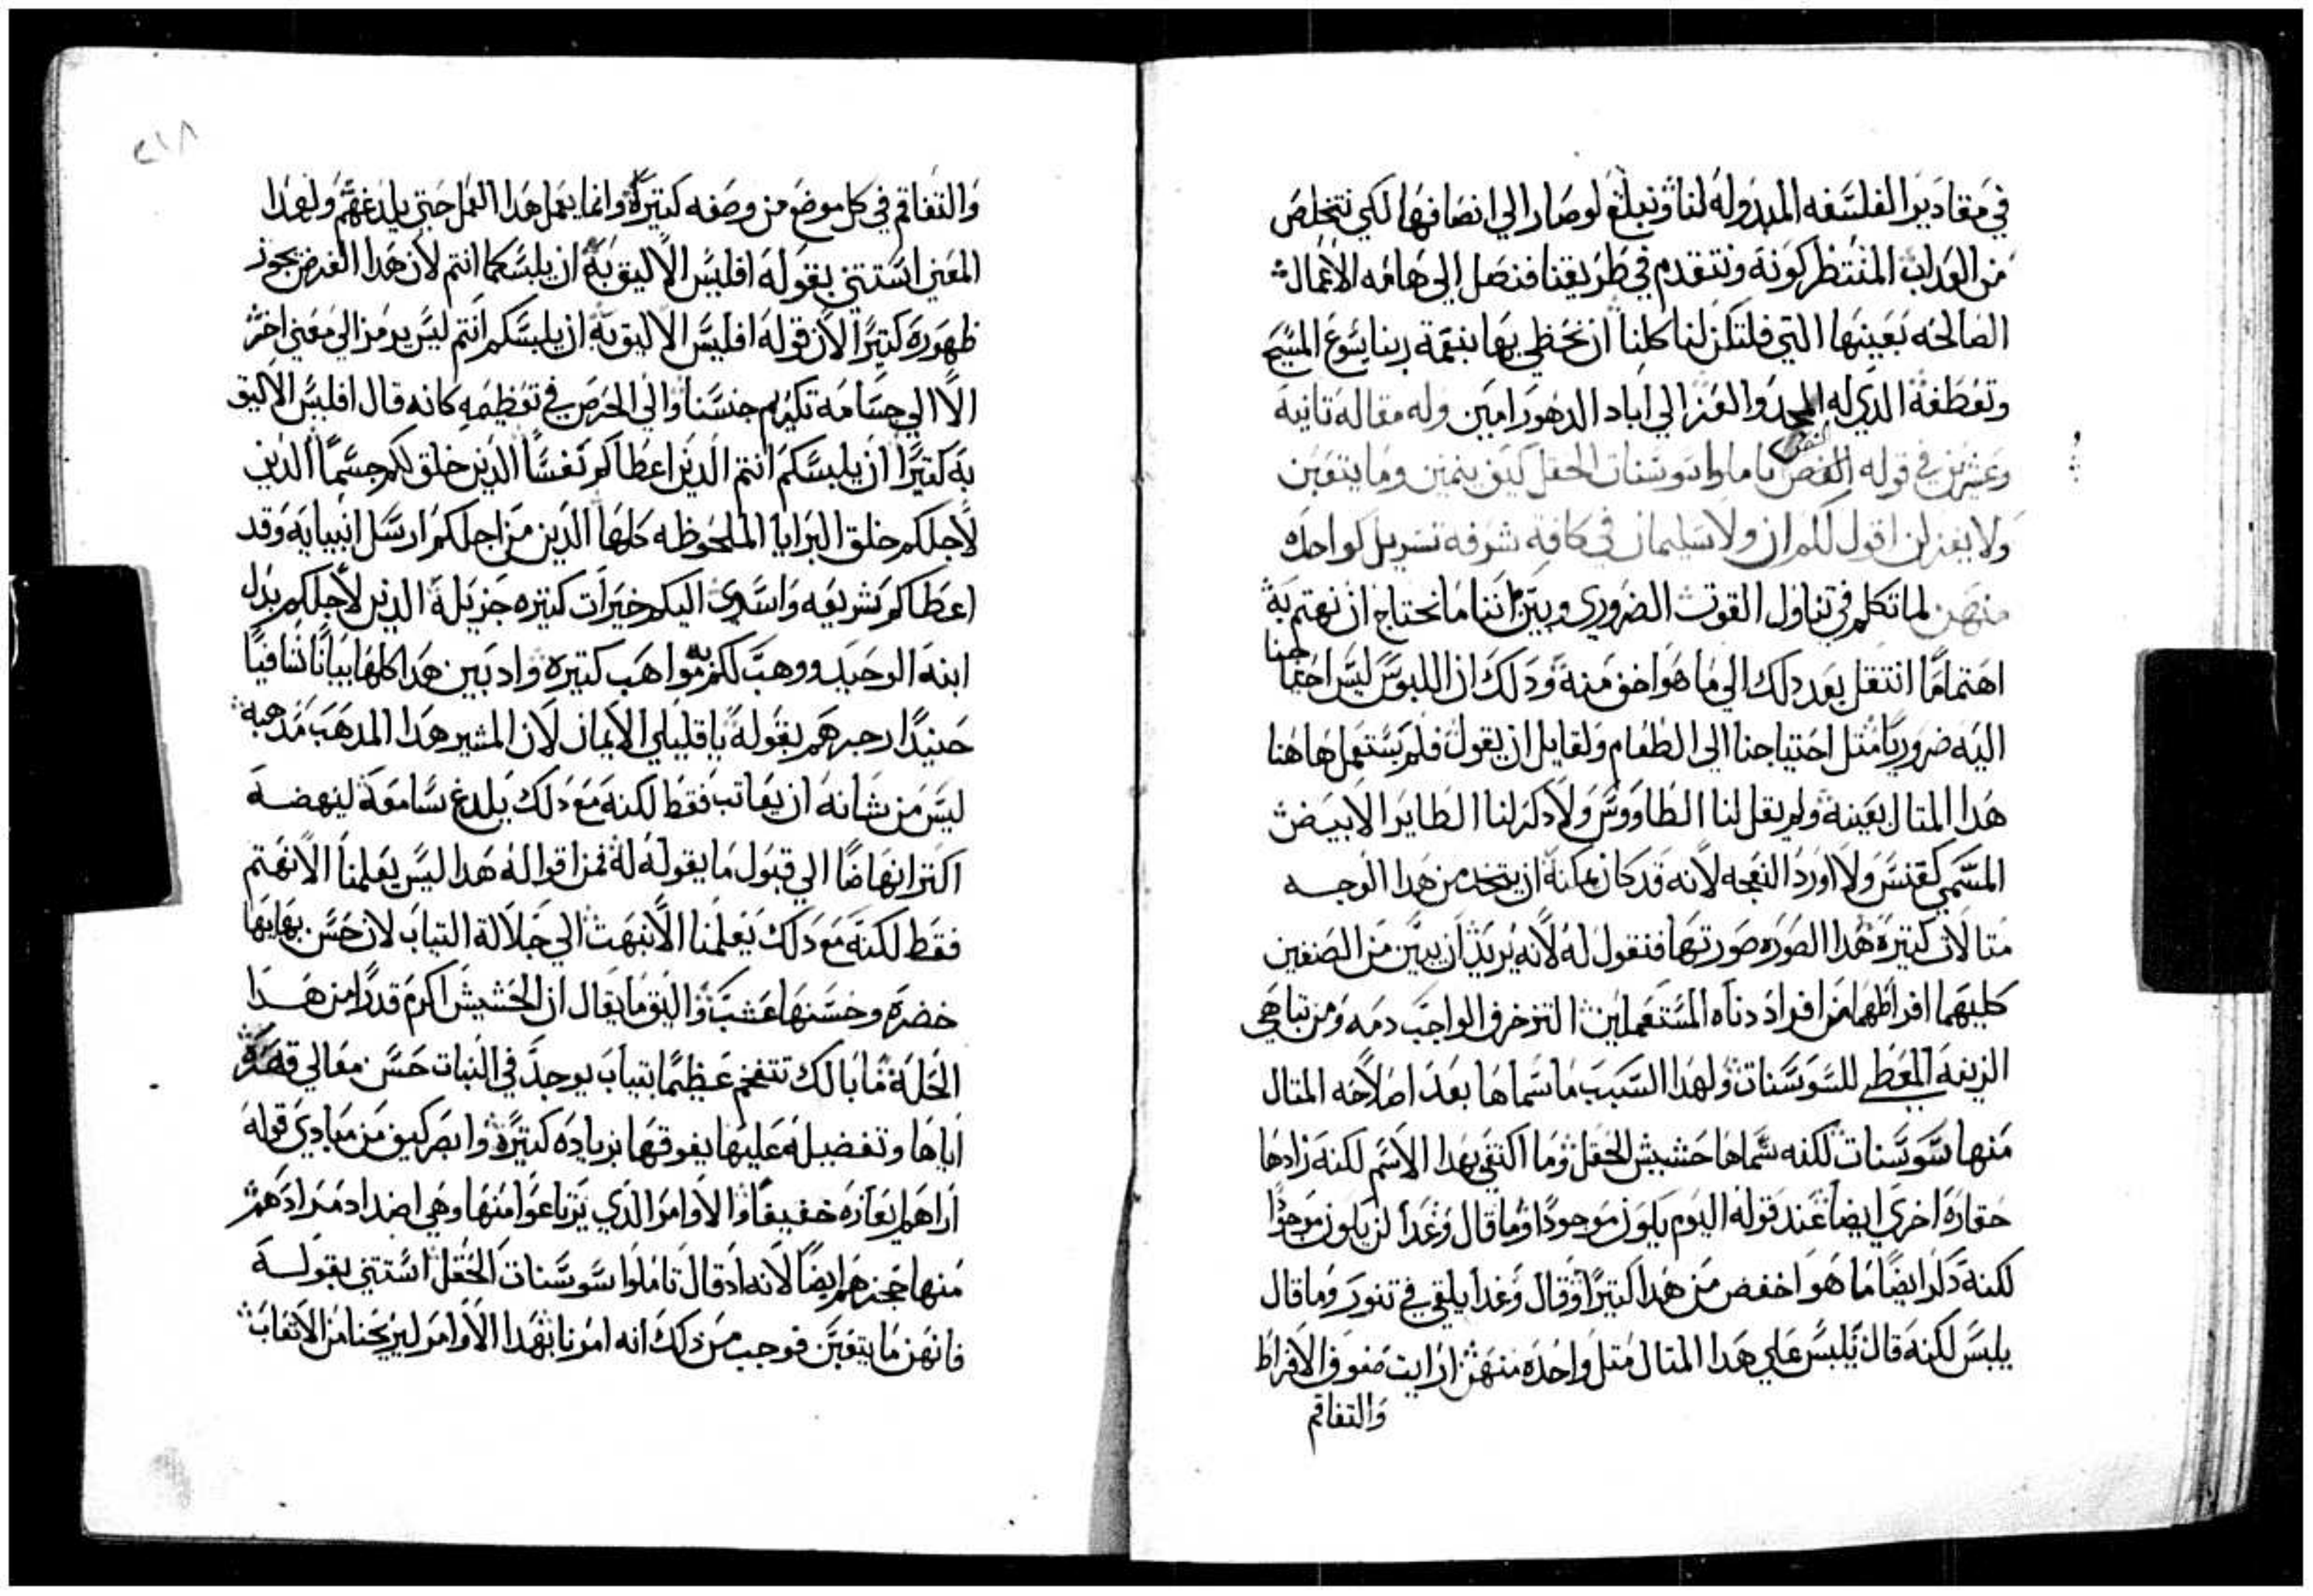 في مقادير الفلسفه المبدوله لنا ونبلغ لو صار الي انصافها لكي نتخلص
من العداب المنتظر كونه ونتقدم في طريقنا فنصل الي هامه الاعمال
الصالحه بعينها التي فلتكن لنا كلنا ان نحظي بها بنعمة ربنا يسوع المسيح
وتعطفه الدي له المجد والعز الي اباد الدهور امين وله مقاله تانية
وعشرين في قوله النص تاملوا سوسنات الحقل كيف ينمين وما يتعبن
ولا يغزلن اقول لكم ان ولا سليمان في كافة شرفه تسربل كواحده
منهن لما تكلم في تناول القوت الضروري وبين اننا ما نحتاج ان نهتم به
اهتماما انتقل بعد دلك الي ما هو اخف منه ودلك ان اللبوس ليس احتياجنا
اليه ضروريا متل احتياجنا الي الطعام ولقايل ان يقول فلم يستعمل هاهنا
هدا المتال بعينه ولم يقل لنا الطاووس ولا دكر لنا الطاير الابيض
المسمي كقنس ولا اورد النعجه لانه قد كان يمكنه ان يتخد من هدا الوجه
متالات كتيره هدا الصوره صورتها فنقول له لانه يريد ان يبين من الصنفين
كليهما افراطهما من افراد دناه المستعملين التزخرف الواجب دمه ومن تباهي
الزينه المعطي للسوسنات ولهدا السبب ما سماها بعد اصلاحه المتال
منها سوسنات لكنه سماها حشيش الحقل وما اكتفي بهدا الاسم لكنه زادها
حقاره اخري ايضا عند قوله اليوم يكون موجودا وما قال وغدا لن يكون موجودا
لكنه دكر ايضا ما هو اخفض من هدا كتيرا وقال وغدا يلقي في تنور وما قال
يلبس لكنه قال يلبس علي هدا المتال متل واحده منهن ارايت صنوف الافراط
والتفاقم
٢١٨
والتفاقم في كل موضع من وصفه كتيرة وانما يعمل هدا العمل حتي يلدغهم ولهدا
المعني استتني بقوله افليس الاليق به ان يلبسكما انتم لان هدا الغرض يجوز
ظهوره كتيرا لان قوله افليس الاليق به ان يلبسكم انتم ليس يرمز الي معني اخر
الا الي جسامة تكريم جنسنا والي الحرص في تعظيمه كانه قال افليس الاليق
به كتيرا ان يلبسكم انتم الدين اعطاكم نفسا الدين خلق لكم جسما الدين
لاجلكم خلق البرايا الملحوظه كلها الدين من اجلكم ارسل انبيايه وقد
اعطاكم شريعه واسدي اليكم خيرات كتيره جزيلة الدين لاجلكم بدل
ابنه الوحيد ووهب لكم به مواهب كتيره واد بين هدا كلها بيانا شافيا
حنيدا رجرهم بقوله يا قليلي الايمان لان المشير هدا المدهب مدهبه
ليس من شانه ان يعاتب فقط لكنه مع دلك يلدغ سامعه لينهضه
اكتر انهاضا الي قبول ما يقوله له فمن اقواله هدا ليس يعلمنا الا نهتم
فقط لكنه مع دلك يعلمنا الا نبهت الي جلالة التياب لان حسن بهايها
خضره وحسنها عشب واليق ما يقال ان الحشيش اكرم قدرا من هدا
الحلة فما بالك تتفخم عظيما بتياب يوجد في النبات حسن معالي قهره
اياها وتفضيله عليها يفوقها بزياده كتيرة وابصر كيف من مبادي قوله
اراهم نعازه خفيفا والاوامر الدي يرتاعوا منها وهي اضداد مرادهم
منها حجزهم ايضا لانه اد قال تاملوا سوسنات الحقل استتني بقوله
فانهن ما يتعبن فوجب من دلك انه امرنا بهدا الاوامر ليريحنا من الاتعاب